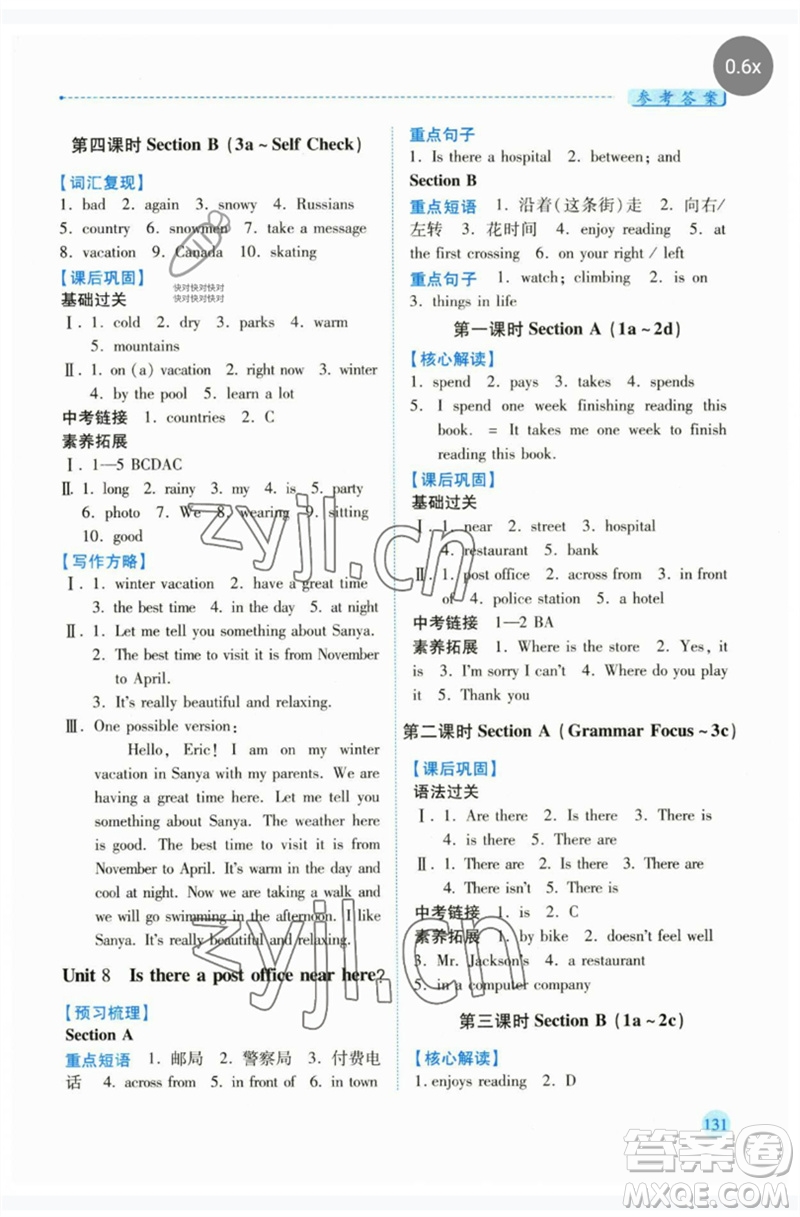 0.6x
参考答案
第四课时 Section B (3a ~ Self Check)
【词汇复现】
1. bad 2. again 3. snowy 4. Russians
5. country 6. snowmen 7. take a message
8. vacation 9. Canada 10. skating
快对快对快对
快对快对快对
【课后巩固】
基础过关
Ⅰ. 1. cold 2. dry 3. parks 4. warm
5. mountains
Ⅱ. 1. on (a) vacation 2. right now 3. winter
4. by the pool 5. learn a lot
中考链接 1. countries 2. C
素养拓展
Ⅰ. 1—5 BCDAC
Ⅱ. 1. long 2. rainy 3. my 4. is 5. party
6. photo 7. We 8. wearing 9. sitting
10. good
【写作方略】
Ⅰ. 1. winter vacation 2. have a great time
3. the best time 4. in the day 5. at night
Ⅱ. 1. Let me tell you something about Sanya.
2. The best time to visit it is from November
to April.
3. It's really beautiful and relaxing.
Ⅲ. One possible version:
Hello, Eric! I am on my winter
vacation in Sanya with my parents. We are
having a great time here. Let me tell you
something about Sanya. The weather here
is good. The best time to visit it is from
November to April. It's warm in the day and
cool at night. Now we are taking a walk and
we will go swimming in the afternoon. I like
Sanya. It's really beautiful and relaxing.
Unit 8 Is there a post office near here?
【预习梳理】
Section A
重点短语 1. 邮局 2. 警察局 3. 付费电
话 4. across from 5. in front of 6. in town
重点句子
1. Is there a hospital 2. between; and
Section B
重点短语 1. 沿着(这条街)走 2. 向右/
左转 3. 花时间 4. enjoy reading 5. at
the first crossing 6. on your right / left
重点句子 1. watch; climbing 2. is on
3. things in life
第一课时 Section A (1a ~ 2d)
【核心解读】
1. spend 2. pays 3. takes 4. spends
5. I spend one week finishing reading this
book. = It takes me one week to finish
reading this book.
【课后巩固】
基础过关
Ⅰ. 1. near 2. street 3. hospital
4. restaurant 5. bank
Ⅱ. 1. post office 2. across from 3. in front
of 4. police station 5. a hotel
中考链接 1—2 BA
素养拓展 1. Where is the store 2. Yes, it
is 3. I'm sorry I can't 4. Where do you play
it 5. Thank you
第二课时 Section A (Grammar Focus ~ 3c)
【课后巩固】
语法过关
Ⅰ. 1. Are there 2. Is there 3. There is
4. is there 5. There are
Ⅱ. 1. There are 2. Is there 3. There are
4. There isn't 5. There is
中考链接 1. is 2. C
素养拓展 1. by bike 2. doesn't feel well
3. Mr. Jackson's 4. a restaurant
5. in a computer company
第三课时 Section B (1a ~ 2c)
【核心解读】
1. enjoys reading 2. D
131
zyjl.cn
zyjl.cn
答案圈
MXQE.COM